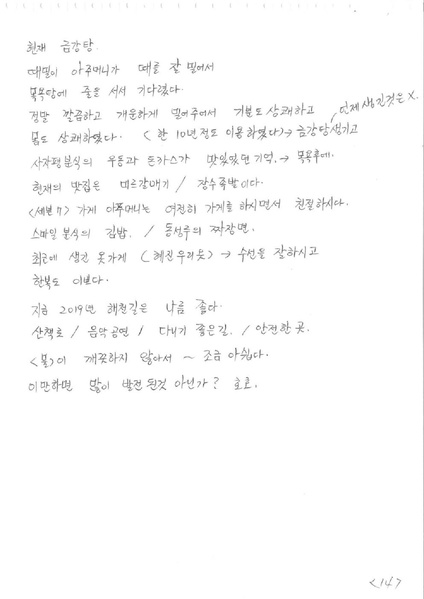 현재 금강탕.
때밀이 아주머니가 때를 잘 밀어서
목욕탕에 줄을 서서 기다렸다.
정말 깔끔하고 개운하게 밀어주어서 기분도 상쾌하고
언제 생긴것은 X.
몸도 상쾌하였다. (한 10년 정도 이용하였다) → 금강탕 생기고
사자평분식의 우동과 돈까스가 맛있었던 기억. → 목욕후에.
현재의 맛집은 미르갈매기 / 장수족발이다.
가게 아주머니는 여전히 가게를 하시면서 친절하시다.
스마일 분식의 김밥. / 동성루의 짜장면.
최근에 생긴 옷가게 (혜진우리옷) → 수선을 잘하시고
한복도 이쁘다.
지금 2019년 해천길은 나름 좋다.
산책로 / 음악공연 / 다니기 좋은길. / 안전한 곳.
<물>이 깨끗하지 않아서 ~ 조금 아쉽다.
이만하면 많이 발전 된것 아닌가? 호호.
<14>